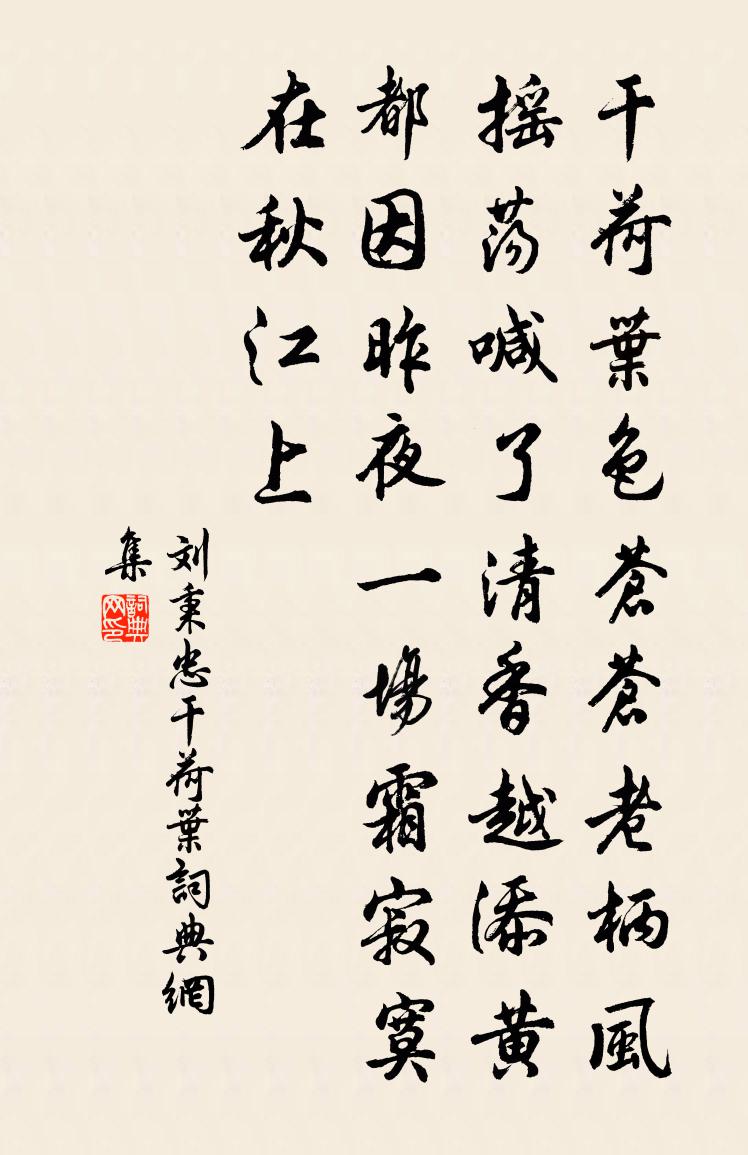 干荷葉色蒼蒼老柄風
摇荡喊了清香越添黄
都因昨夜一場霜寂寞
在秋江上
刘秉忠干荷葉詞典網
集
詞典
网印